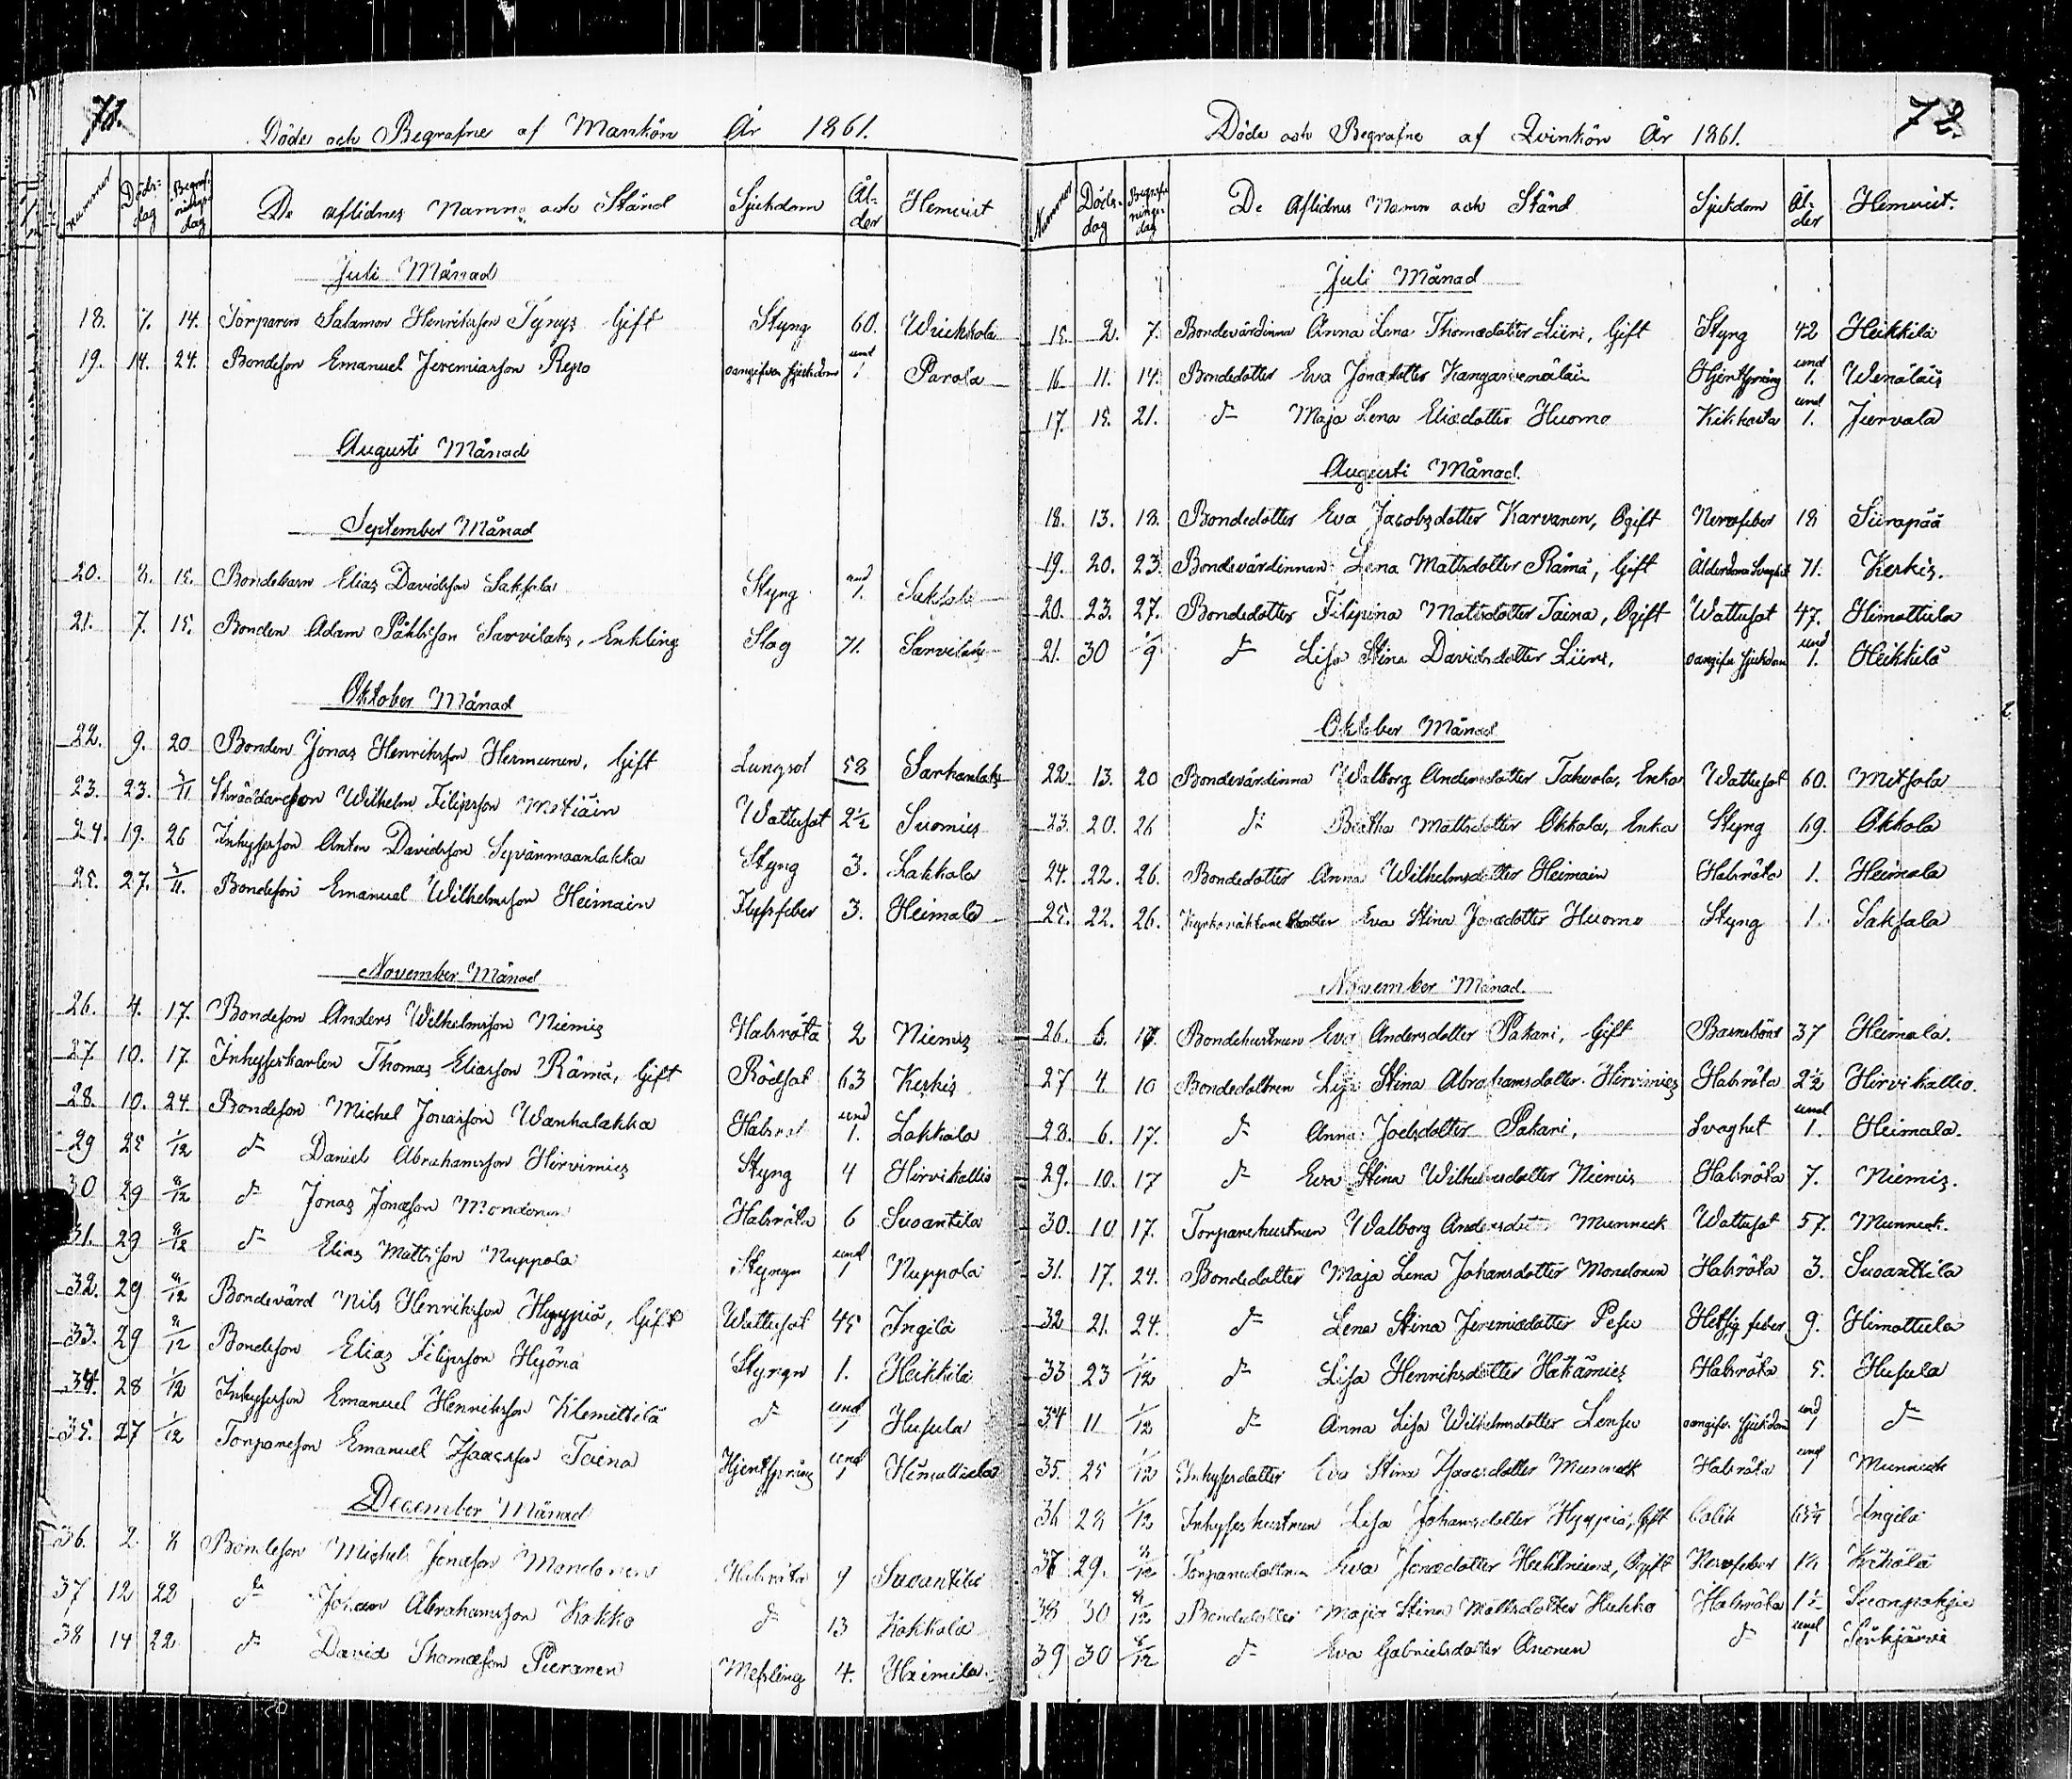 71.
Döde och Begrafne af Mankön År 1861.
Nummer Döds-dag Begrafningsdag De aflidnes Namn och Stånd Sjukdom Ålder Hemvist
Juli Månad
18. 7. 14. Torparen Salamon Henriksson Tynys Gift Styng 60. Wirkkala
19. 14. 24. Bondeson Emanuel Jeremiasson Repo oangifven sjukdom und 1 Parola
Augusti Månad
September Månad
20. 8. 15. Bondebarn Elias Davidsson Saksala Styng und 1. Saksala
21. 7. 15. Bonden Adam Påhlsson Sarvilaks, Enkling Slag 71. Sarvilaks
Oktober Månad
22. 9. 20 Bonden Jonas Henriksson Hermunen, Gift Lungsot 58 Sarkanlaks
23. 23. 3/11 Skräddareson Wilhelm Filipsson Mstiäin Wattusot 2½ Suomies
24. 19. 26 Inhysesson Anton Davidsson Syvänmaanlakka Styng 3. Lakkala
25. 27. 3/11. Bondeson Emanuel Wilhelmsson Heimain Flyssfeber 3. Heimala
November Månad
26. 4. 17. Bondeson Anders Wilhelmsson Niemis Halsröta 2 Niemis
27 10. 17. Inhyseskarlen Thomas Eliasson Rämä, Gift Rödsot 63 Kerkis
28. 10. 24. Bondeson Michel Jonasson Wanhalakka Halsrot und 1. Lakkala
29 25 1/12 d:o Daniel Abrahamsson Hirvimies Styng 4 Hirvikallio
30 29 8/12 d:o Jonas Jonasson Mondonen Halsröta 6 Suoantila
31. 29 8/12 d:o Elias Mattsson Nuppola Styngn und 1 Nuppola
32. 29 8/12 Bondevärd Nils Henriksson Hyypiä, Gift Wattusot 45 Ingilä
33. 29 8/12 Bondeson Elias Filipsson Hyönä Styngn 1. Heikkilä
34. 28 1/12 Inhysesson Emanuel Henriksson Klemittilä d:o und 1 Husula
35. 27 1/12 Torpareson Emanuel Isaacsson Taina Hjertsprång und 1 Himottula
December Månad
36. 2. 8 Bondeson Michel Jonasson Mondonen Halsröta 9 Suoantila
37 12 22 d:o Johan Abrahamsson Kokko d:o 13 Kokkola
38 14 22 d:o David Thomasson Pieranen Messling 4. Heimila
72.
Döde och Begrafne af Qvinkön År 1861.
Nummer Döds-dag Begrafningsdag De Aflidnes Namn och Stånd Sjukdom Ålder Hemvist.
Juli Månad
15. 2. 7. Bondevärdinna Anna Lena Thomasdotter Liiri, Gift Styng 42 Heikkilä
16 11. 14. Bondedotter Eva Jonædotter Kangasvenäläin Hjertsprång und 1. Wenäläis
17. 15. 21. d:o Maja Lena Eliædotter Huomo Kikhosta und 1. Jurvala
Augusti Månad.
18. 13. 18. Bondedotter Eva Jacobsdotter Karvanen, Ogift Nervfeber 18 Siirapää
19. 20. 23. Bondevärdinnan Lena Mattsdotter Rämä, Gift Ålderdoms Svaghet 71. Kerkis.
20. 23. 27. Bondedotter Filipina Mattsdotter Taina, Ogift Wattusot 47. Himottula
21. 30 1/9 d:o Lisa Stina Davidsdotter Liiri, oangifv sjukdom und 1. Heikkilä
Oktober Månad
22. 13. 20 Bondevärdinna Walborg Andersdotter Takvola, Enka Wattusot 60. Mitsola
23. 20. 26 d:o Beatha Mattsdotter Okkola, Enka Styng 69. Okkola
24. 22. 26. Bondedotter Anna Wilhelmsdotter Heimain Halsröta 1. Heimala
25. 22. 26. Kyrkoväktare dotter Eva Stina Jonædotter Huomo Styng 1. Saksala
November Månad.
26. 6. 17. Bondehustrun Eva Andersdotter Pakari, Gift Barnsbörd 37 Heimala.
27 4 10 Bondedottren Lisa Stina Abrahamsdotter Hirvimies Halsröta 2½ Hirvikallio.
28. 6. 17. d:o Anna Joelsdotter Pakari, Svaghet und 1. Heimala.
29. 10. 17 d:o Eva Stina Wilhelmsdotter Niemis Halsröta 7. Niemis.
30. 10 17. Torparehustrun Walborg Andersdotter Munneck Wattusot 57. Munneck.
31. 17. 24. Bondedotter Maja Lena Johansdotter Mondonen Halsröta 3. Suoanttila
32 21. 24. d:o Lena Stina Jeremiædotter Pesu Hetsig feber 9. Himottula
33 23 1/12 d:o Lisa Henriksdotter Hakämies Halsröta 5. Husula
34 11 1/12 d:o Anna Lisa Wilhelmsdotter Lensu oangifv sjukdom und 1 d:o
35. 25 1/12 Inhysesdotter Eva Stina Isaacsdotter Munneck Halsröta und 1 Munneck
36 28 1/12 Inhyseshustrun Lisa Johansdotter Hyypiä, Gift Colik Ingilä
37 29. 8/12 Torparedottren Eva Jonædotter Ogift Nervfeber
38 30 8/12 Bondedotter Maja Stina Mattsdotter Hukko Halsröta 1½ Suonpohja
39 30 8/12 d:o Eva Gabrielsdotter Änonen d:o und 1